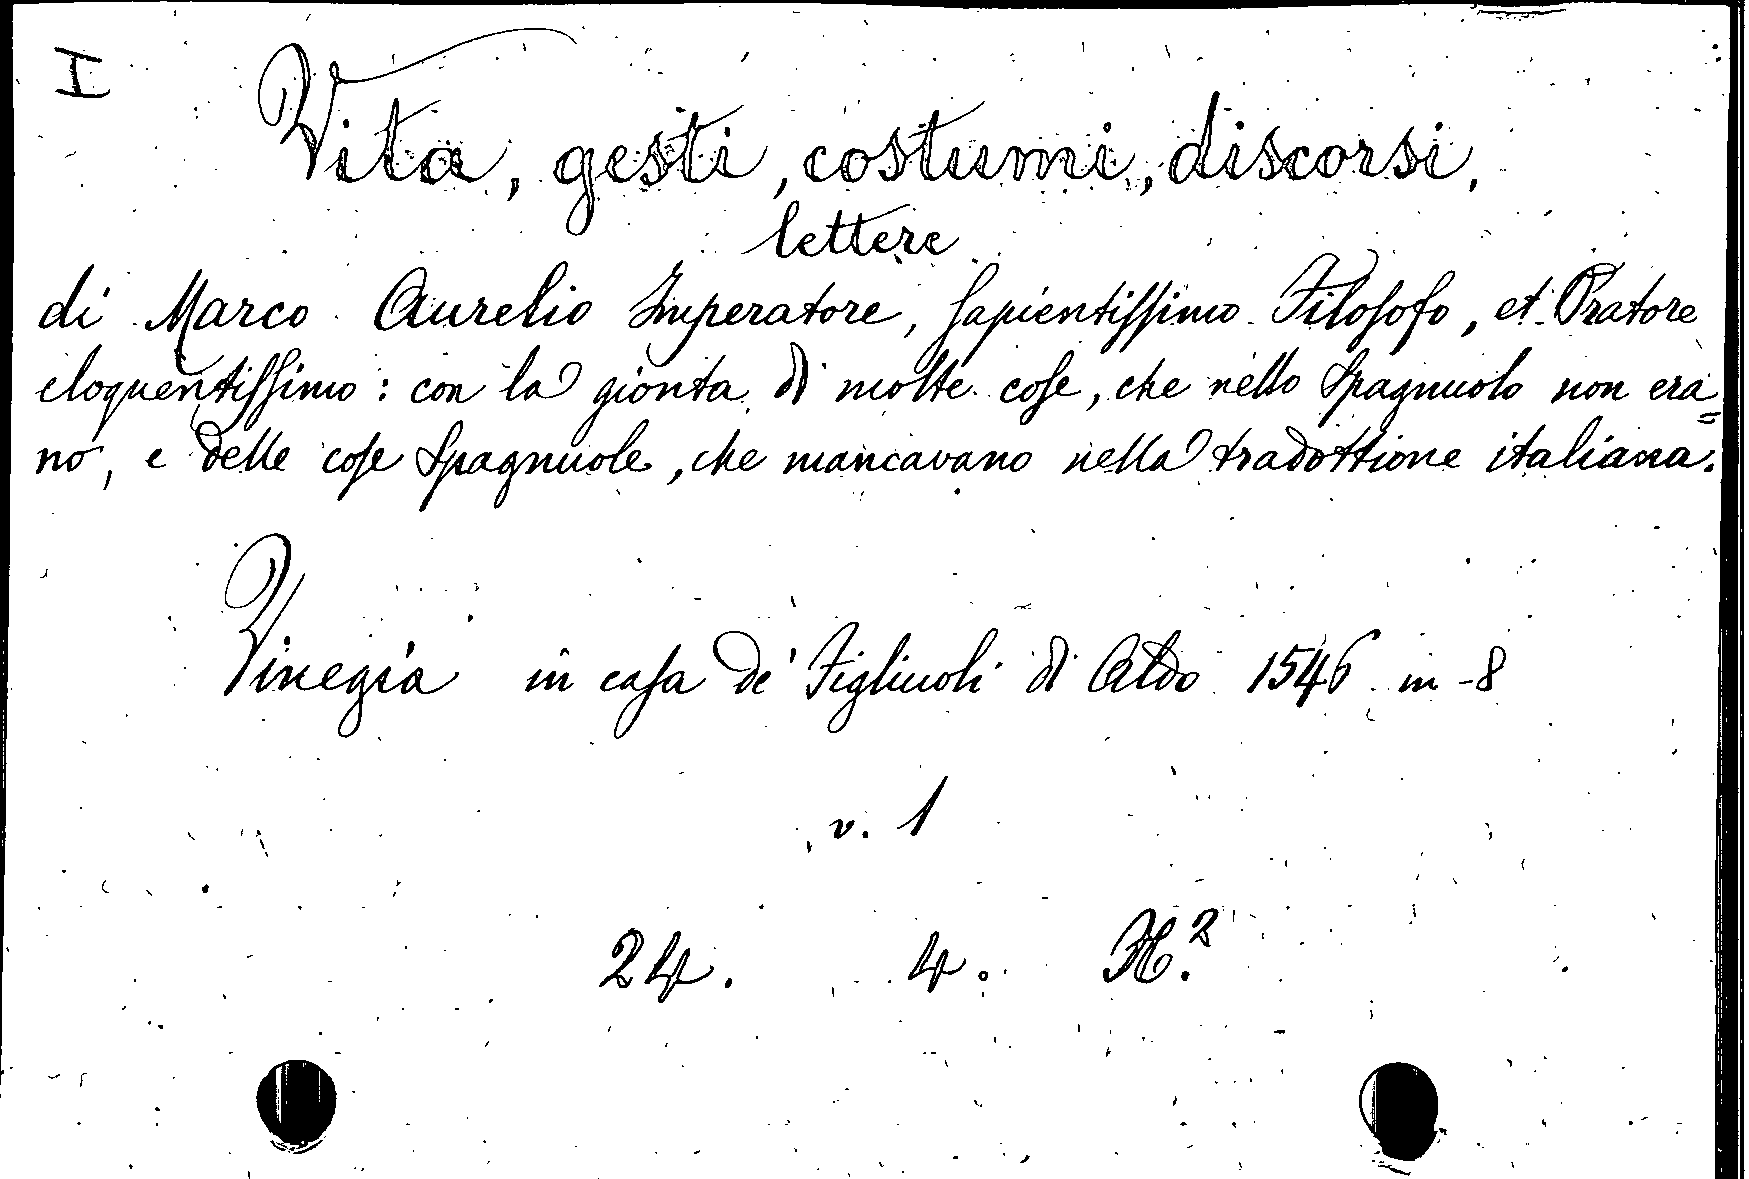 I
Vita, gesti, costumi, discorsi,
lettere
di Marco Aurelio Imperatore, sapientissimo Filosofo, et Oratore
eloquentissimo: con la gionta di molte cose, che nello Spagnuolo non era=
no, e delle cose Spagnuole, che mancavano nella tradottione italiana.
Vinegia in casa de' Figliuoli di Aldo 1546 in-8
v. 1
24. 4. H.²